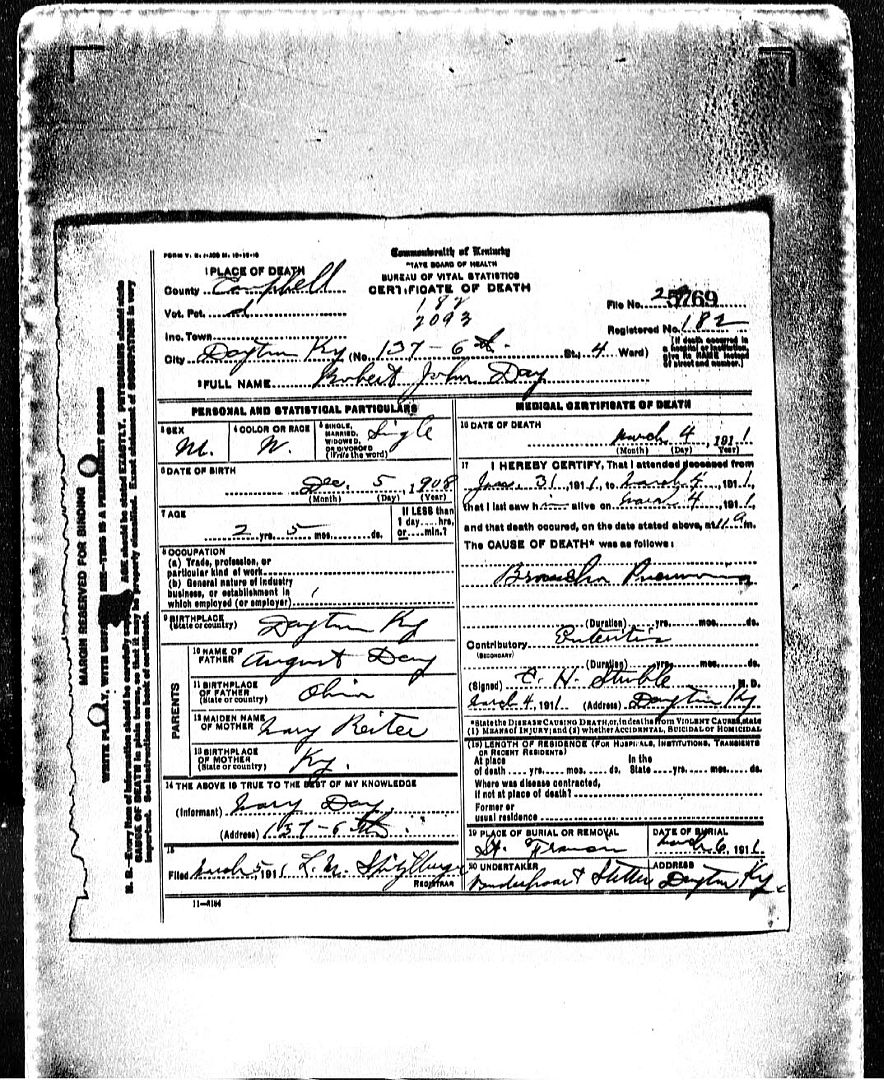 FORM V. S. 1-200 M. 10-10-10
Commonwealth of Kentucky
STATE BOARD OF HEALTH
BUREAU OF VITAL STATISTICS
CERTIFICATE OF DEATH
1 PLACE OF DEATH
County Campbell
Vot. Pct. d
Inc. Town
City Dayton Ky (No. 137-6 St. St.; 4 Ward)
182
2093
File No. 25769
Registered No. 182
[If death occurred in a hospital or institution, give its NAME instead of street and number.]
2 FULL NAME Robert John Day
PERSONAL AND STATISTICAL PARTICULARS
3 SEX M.
4 COLOR OR RACE W.
5 SINGLE, MARRIED, WIDOWED, OR DIVORCED (Write the word) Sigle
6 DATE OF BIRTH
Dec. 5, 1908
(Month) (Day) (Year)
7 AGE
2 yrs. 5 mos. ds.
If LESS than 1 day....hrs, or....min.?
8 OCCUPATION
(a) Trade, profession, or particular kind of work
(b) General nature of industry business, or establishment in which employed (or employer)
9 BIRTHPLACE (State or country) Dayton Ky
PARENTS
10 NAME OF FATHER August Day
11 BIRTHPLACE OF FATHER (State or country) Ohio
12 MAIDEN NAME OF MOTHER Mary Reiter
13 BIRTHPLACE OF MOTHER (State or country) Ky.
14 THE ABOVE IS TRUE TO THE BEST OF MY KNOWLEDGE
(Informant) Mary Day
(Address) 137-6th.
15
Filed March 5 1911 L. M.
REGISTRAR
11-8184
MEDICAL CERTIFICATE OF DEATH
16 DATE OF DEATH
March 4, 1911
(Month) (Day) (Year)
17 I HEREBY CERTIFY, That I attended deceased from
Jan. 31, 1911, to March 4, 1911,
that I last saw him alive on March 4, 1911,
and that death occured, on the date stated above, at 11 a m.
The CAUSE OF DEATH* was as follows:
Broncho Pneumonia
(Duration) yrs. mos. ds.
Contributory Enteritis
(SECONDARY)
(Duration) yrs. mos. ds.
(Signed) C. H. Stuble M. D.
March 4, 1911 (Address) Dayton Ky
*State the DISEASE CAUSING DEATH, or, in deaths from VIOLENT CAUSES, state (1) MEANS of INJURY; and (2) whether ACCIDENTAL, SUICIDAL or HOMICIDAL
(18) LENGTH OF RESIDENCE (FOR HOSPITALS, INSTITUTIONS, TRANSIENTS OR RECENT RESIDENTS)
At place of death yrs. mos. ds. In the State yrs. mos. ds.
Where was disease contracted, if not at place of death?
Former or usual residence
19 PLACE OF BURIAL OR REMOVAL
St. Francis
DATE OF BURIAL
March 6, 1911
20 UNDERTAKER
ADDRESS
Dayton, Ky.
MARGIN RESERVED FOR BINDING